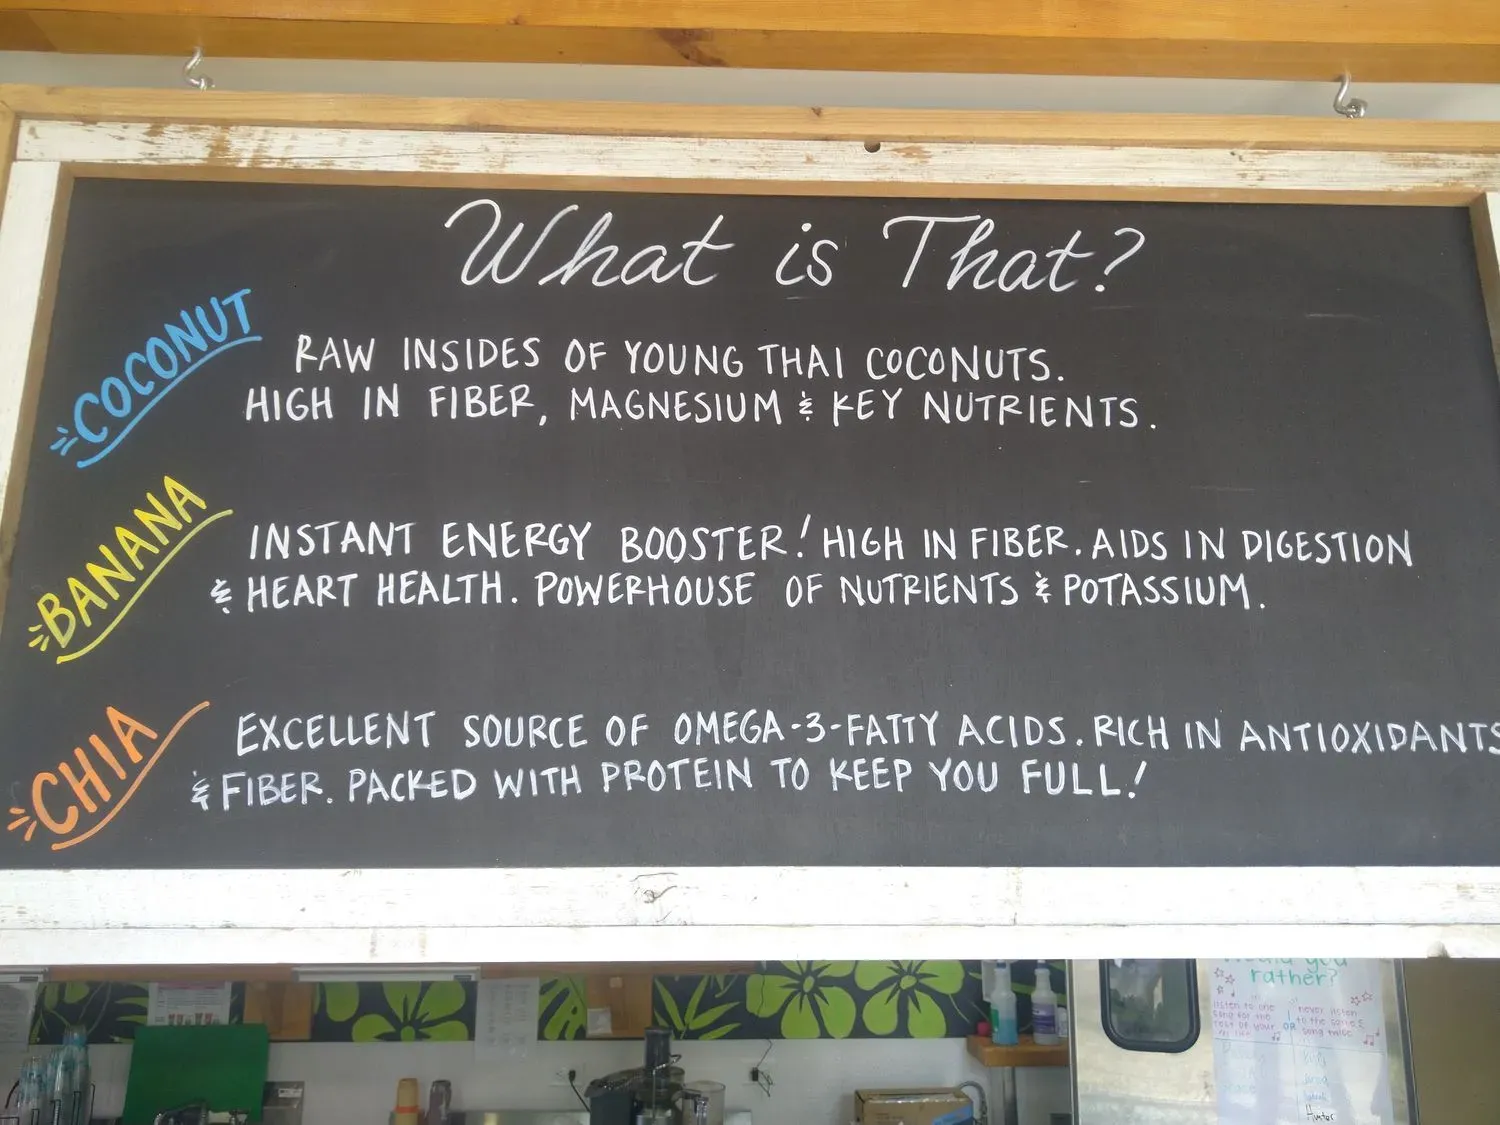 What is That?
COCONUT
RAW INSIDES OF YOUNG THAI COCONUTS.
HIGH IN FIBER, MAGNESIUM & KEY NUTRIENTS.
BANANA
INSTANT ENERGY BOOSTER! HIGH IN FIBER. AIDS IN DIGESTION
& HEART HEALTH. POWERHOUSE OF NUTRIENTS & POTASSIUM.
CHIA
EXCELLENT SOURCE OF OMEGA-3-FATTY ACIDS. RICH IN ANTIOXIDANTS
& FIBER. PACKED WITH PROTEIN TO KEEP YOU FULL!
Would you
rather?
listen to one
song for the
rest of your
OR
never listen
to the same
song twice
Hunter